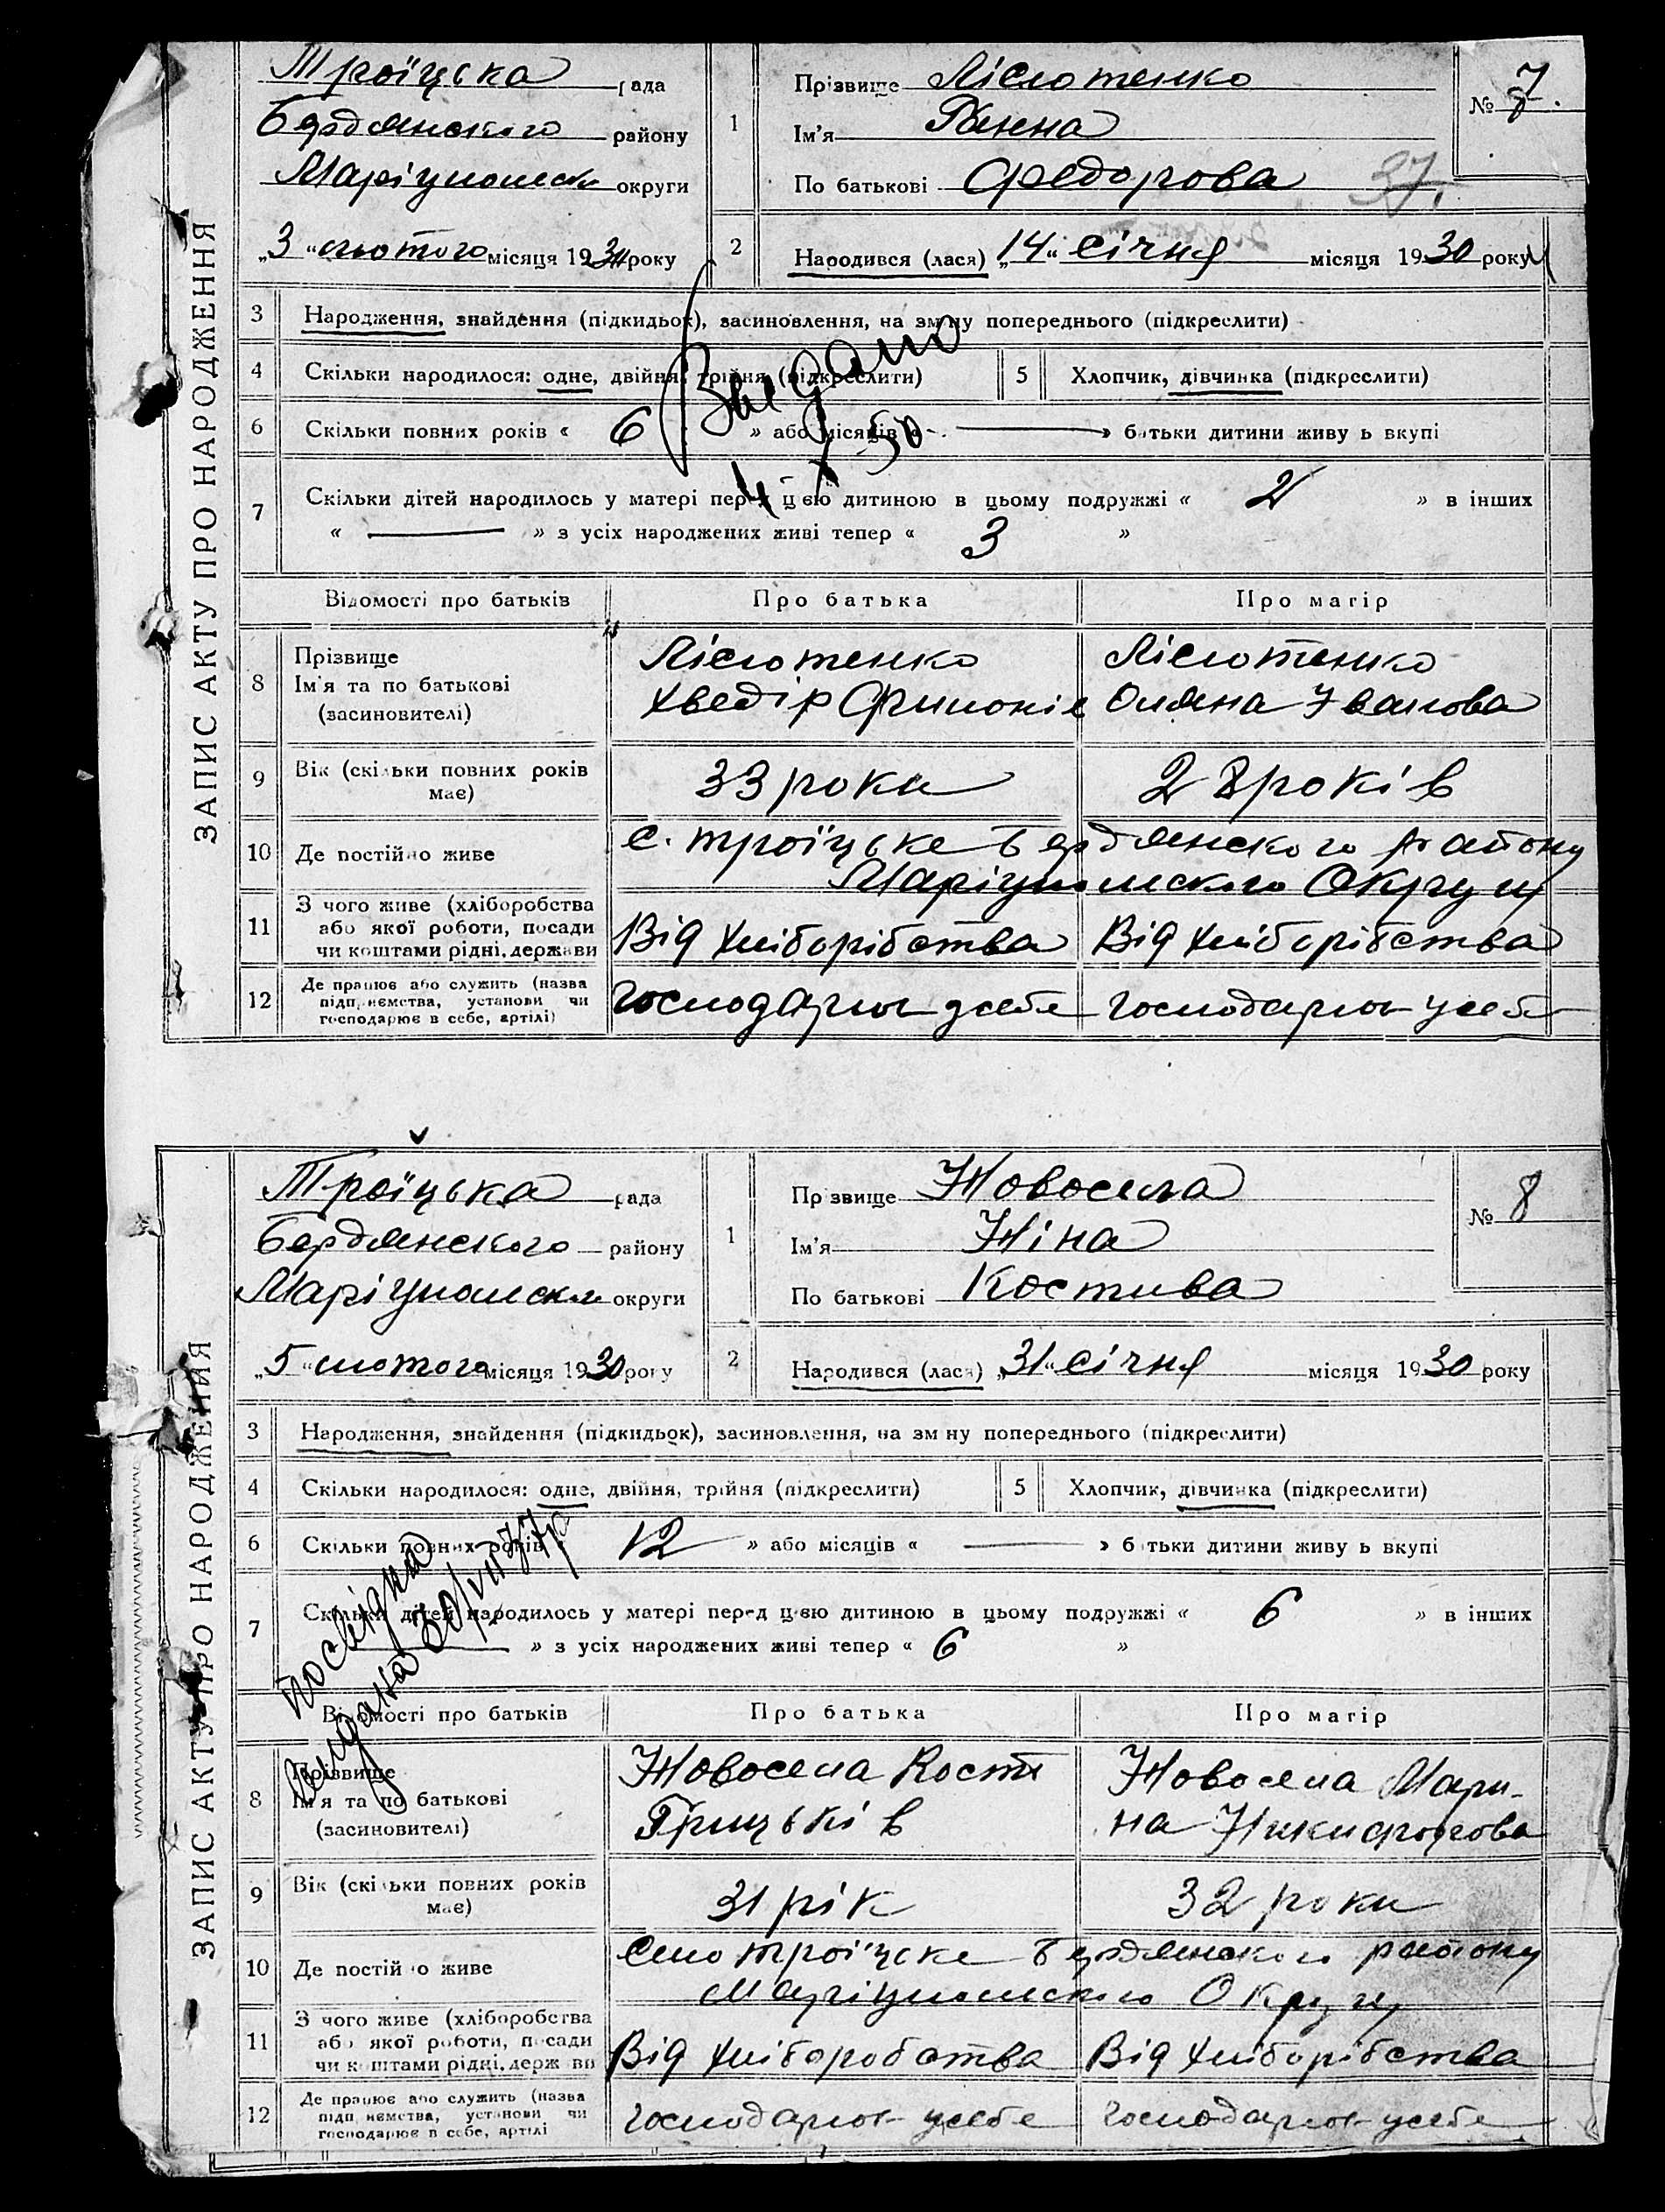 ЗАПИС АКТУ ПРО НАРОДЖЕННЯ
Троїцька рада
Бердянского району
Маріупольськ округи
„3“ лютого місяця 1930 року
1 Прізвище Лісютенко
Ім'я Ганна
По батькові Федорова
№ 7.
37.
2 Народився (лася) „14“ січня місяця 1930 року
3 Народження, знайдення (підкидьок), засиновлення, на зміну попереднього (підкреслити)
4 Скільки народилося: одне, двійня, трійня (підкреслити)
5 Хлопчик, дівчинка (підкреслити)
6 Скільки повних років « 6 » або місяців « — » батьки дитини живуть вкупі
Выдано
4 X 50
7 Скільки дітей народилось у матері перед цією дитиною в цьому подружжі « 2 » в інших
« — » з усіх народжених живі тепер « 3 »
Відомості про батьків Про батька Про матір
8 Прізвище Ім'я та по батькові (засиновителі)
Лісютенко Лісютенко
Хведір Филонів Оляна Іванова
9 Вік (скільки повних років має) 33 роки 28 років
10 Де постійно живе с. троїцьке Бердянского району
Маріупольского Округу
11 З чого живе (хліборобства або якої роботи, посади чи коштами рідні, держави
Від хліборібства Від хліборібства
12 Де працює або служить (назва підприємства, установи чи господарює в себе, артілі)
господарює усебе господарює усебе
ЗАПИС АКТУ ПРО НАРОДЖЕННЯ
Троїцька рада
Бердянского району
Маріупольск округи
„5“ лютого місяця 1930 року
1 Прізвище Новосела
Ім'я Ніна
По батькові Костива
№ 8
2 Народився (лася) „31“ січня місяця 1930 року
3 Народження, знайдення (підкидьок), засиновлення, на зміну попереднього (підкреслити)
4 Скільки народилося: одне, двійня, трійня (підкреслити)
5 Хлопчик, дівчинка (підкреслити)
6 Скільки повних років « 12 » або місяців « — » батьки дитини живуть вкупі
7 Скільки дітей народилось у матері перед цією дитиною в цьому подружжі « 6 » в інших
« — » з усіх народжених живі тепер « 6 »
Відомості про батьків Про батька Про матір
8 Прізвище Ім'я та по батькові (засиновителі)
Новосела Кость Новосела Мари-
Грицьків на Никифорова
9 Вік (скільки повних років має) 31 рік 32 роки
10 Де постійно живе Село троїцьке Бердянского району
Маріупольского Округу
11 З чого живе (хліборобства або якої роботи, посади чи коштами рідні, держави
Від хлібороботва Від хліборібства
12 Де працює або служить (назва підприємства, установи чи господарює в себе, артілі
господарює усебе господарює усебе